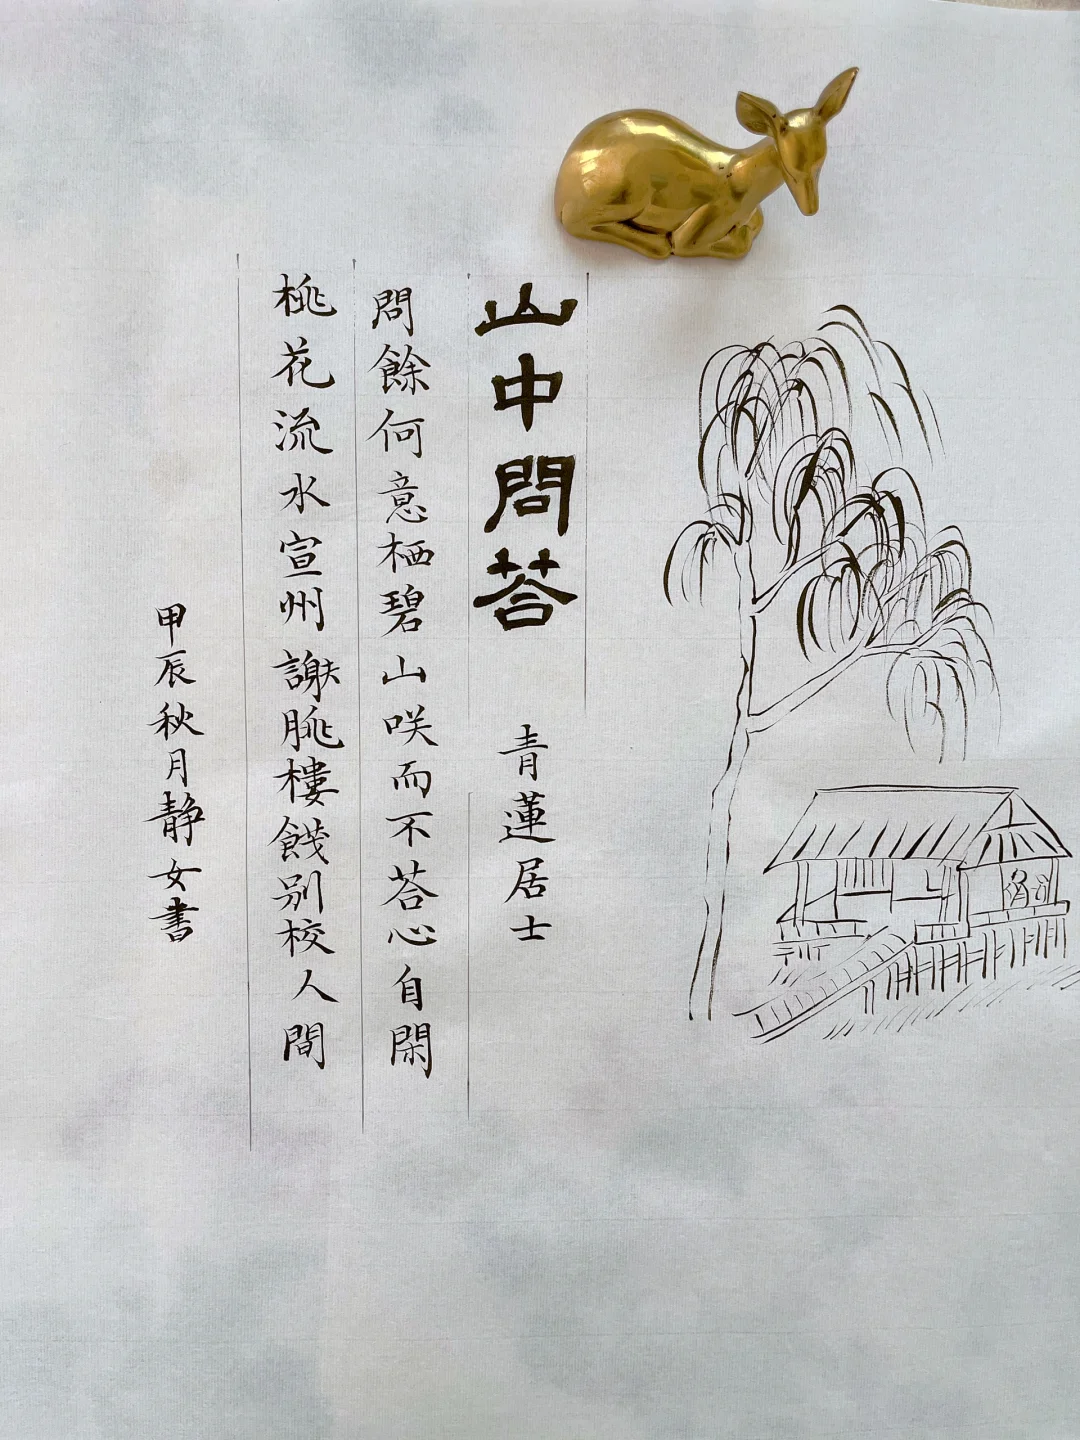 山中問荅
青蓮居士
問餘何意栖碧山咲而不荅心自閑
桃花流水宣州謝朓樓餞别校人間
甲辰秋月静女書